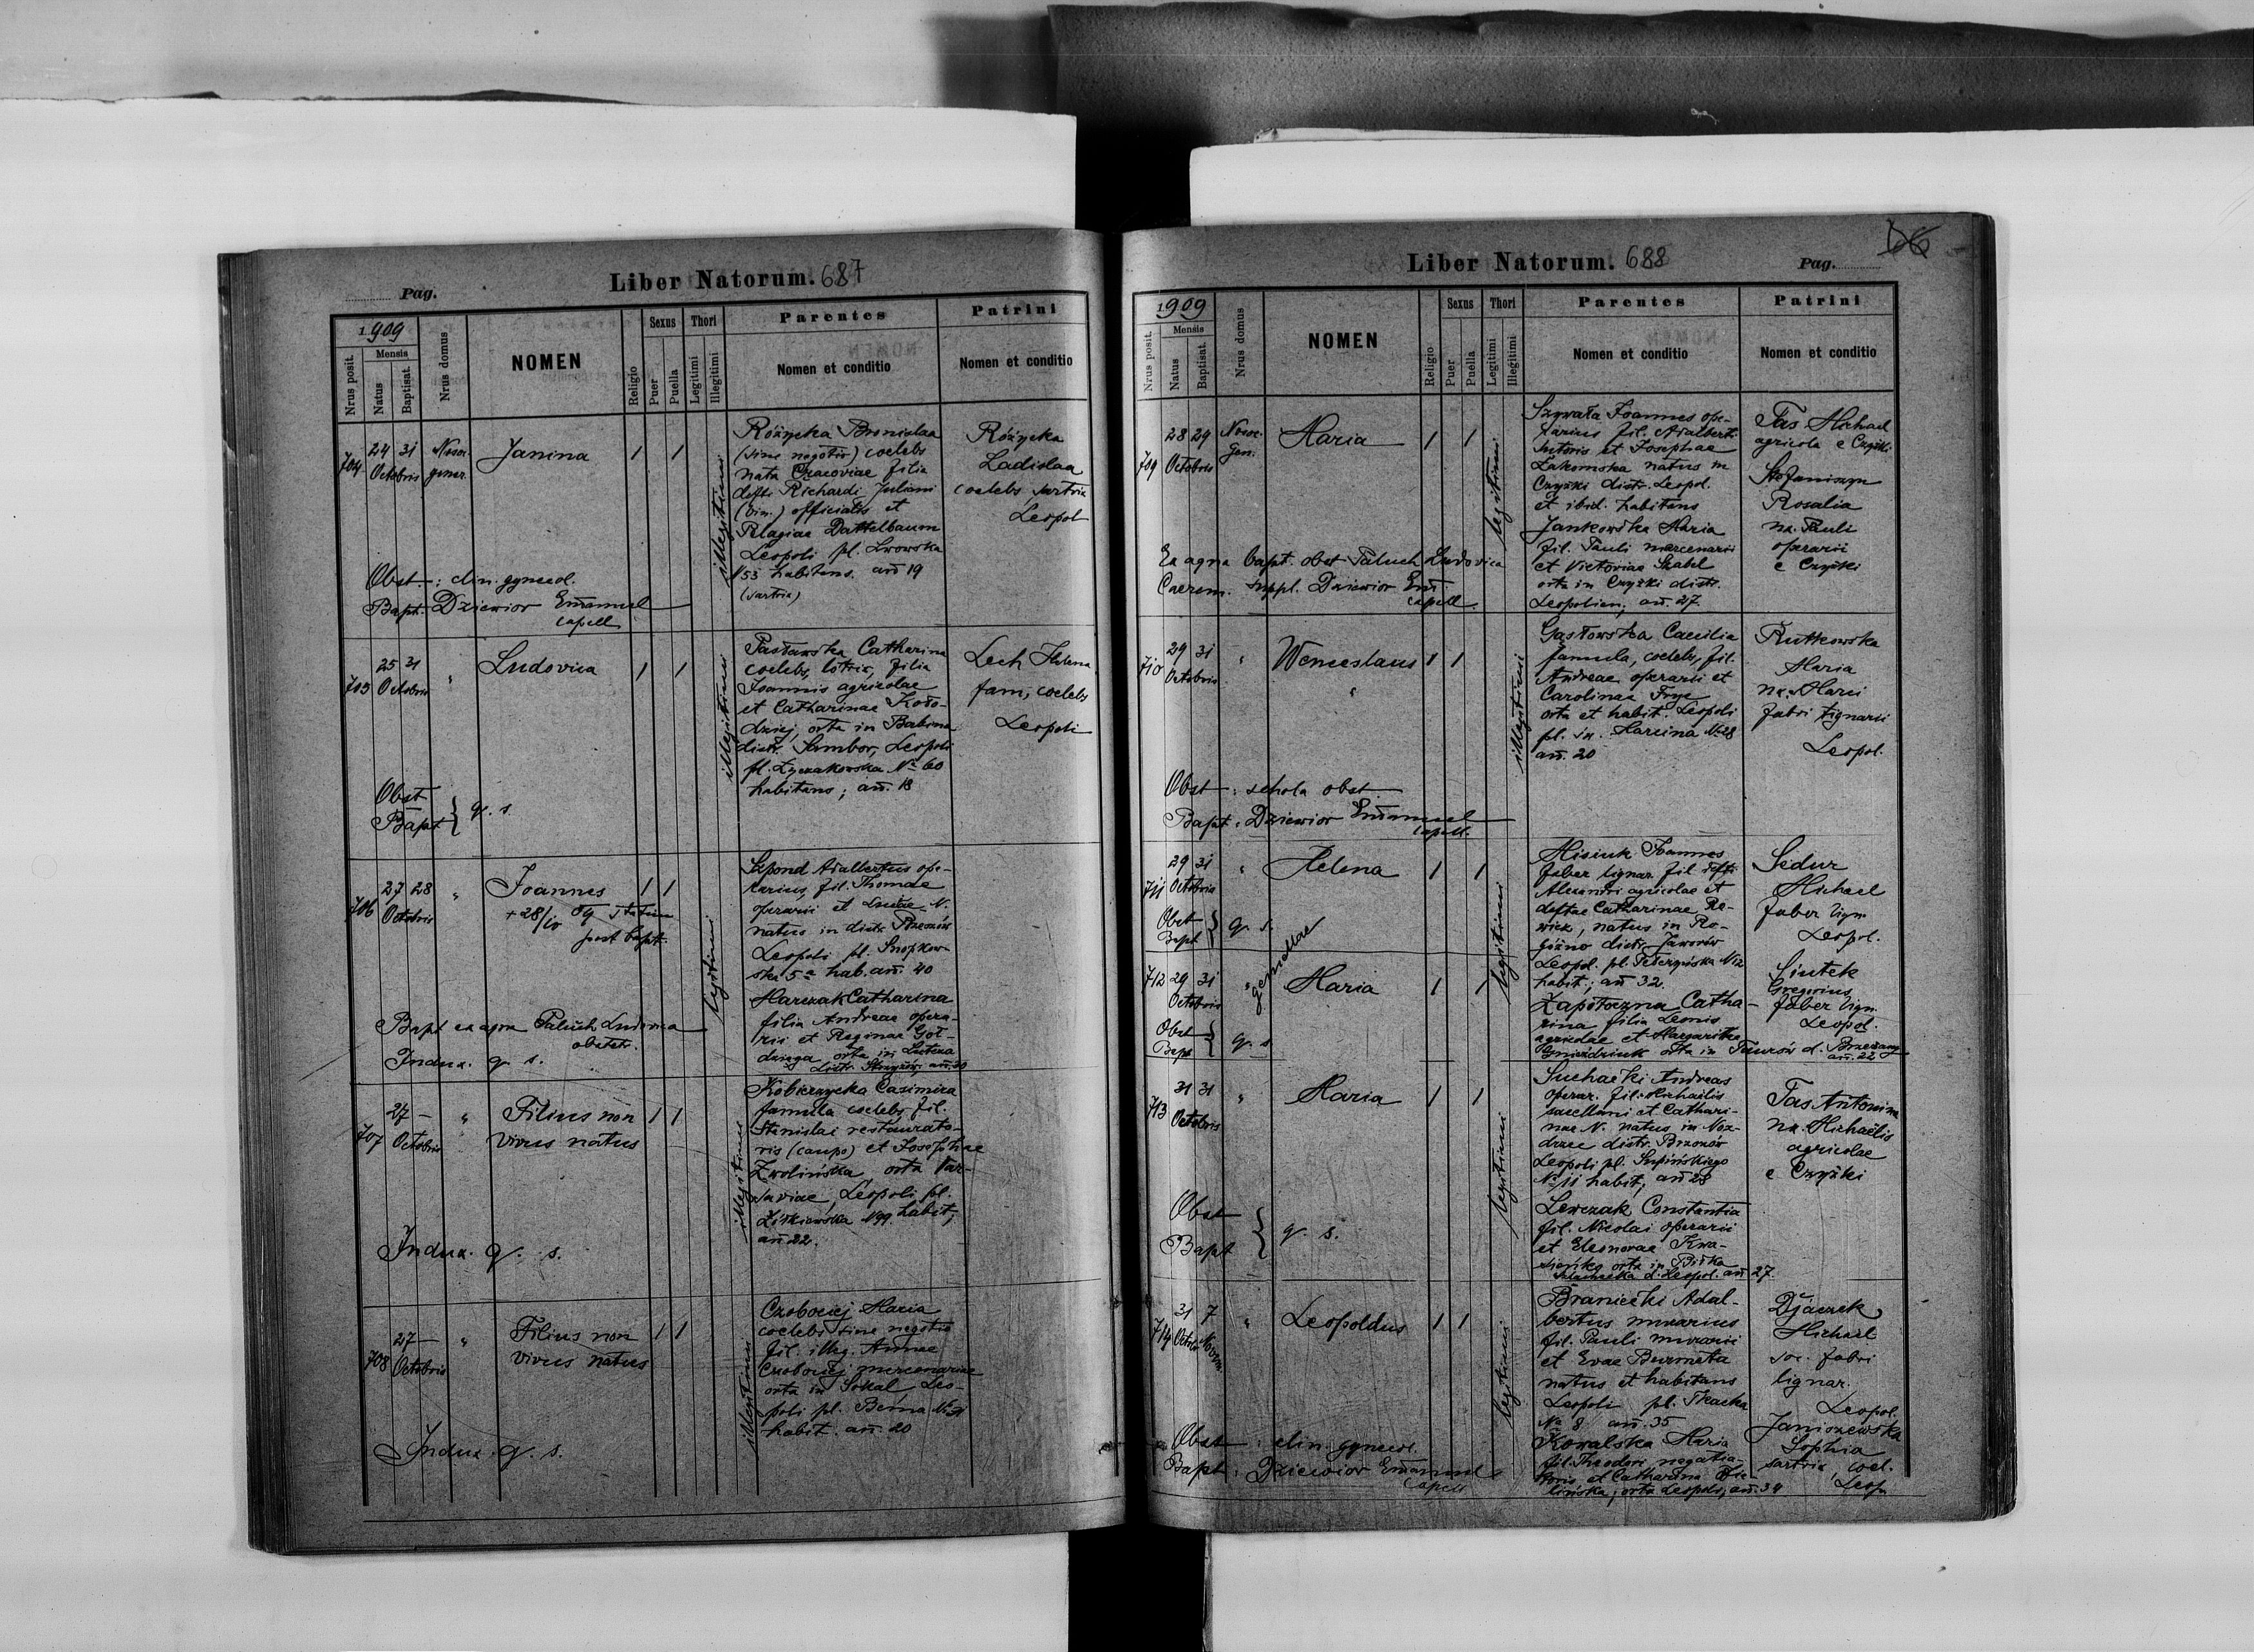 Pag.
Liber Natorum. 687
1909
Nrus posit.
Mensis
Natus
Baptisat.
Nrus domus
NOMEN
Religio
Sexus
Puer
Puella
Thori
Legitimi
Illegitimi
Parentes
Nomen et conditio
Patrini
Nomen et conditio
704
24 31
Octobris
Janina
1 1
illegitimi
Różycka Bronislaa
(sine negotio) coelebs
nata Cracoviae filia
defti Richardi Juliani
(bin.) officialis et
Pelagiae Dattelbaum
Leopoli pl. Lwowska
N53 habitans. añ 19
(sartrix)
Różycka
Ladislaa
coelebs, sartrix
Leopol
Obst: clin. gynecol.
Bapt. Dziewior Emanuel
capell
705
25 31
Octobris
"
Ludovica
1 1
illegitimi
Pastawska Catharina
coelebs, lotrix, filia
Joannis agricolae
et Catharinae Koło-
dziej, orta in Babina
distr. Sambor, Leopoli
pl. Łyczakowska No 60
habitans; añ. 18
Lech Helena
fam, coelebs
Leopoli
Obst
Bapt } q. s
706
27 28
Octobris
"
Joannes
+ 28/10 09 statim
post bapt.
1 1
legitimi
Szpond Adalbertus ope-
rarius, fil. Thomae
operarii et Luciae N.
natus in distr. Brzozów
Leopoli pl. Snopkow-
ska 5a hab. añ. 40
Marczak Catharina
filia Andreae opera-
rii et Reginae Goł-
dziąga orta in Lutcza
distr. Strzyżów, añ.
Bapt ex aqua Paluch Ludovica
obstetr.
Indux. q. s.
707
27 —
Octobris
"
Filius non
vivus natus
1 1
illegitimi
Kobierzycka Casimira
famula coelebs, fil.
Stanislai restaurato-
ris (caupo) et Josephinae
Zwolińska, orta Var-
saviae, Leopoli pl.
Żółkiewska N99 habit;
añ 22.
Indux. q. s.
708
27 —
Octobris
"
Filius non
vivus natus
1 1
illegitimi
Czobociej Maria
coelebs sine negotio
fil. illeg. Annae
Czobociej mercenariae
orta in Sokal, Leo-
poli pl. Bema No 31
habit. añ. 20
Indux. q. s.
Liber Natorum. 688
Pag.
1909
Nrus posit.
Mensis
Natus
Baptisat.
Nrus domus
NOMEN
Religio
Sexus
Puer
Puella
Thori
Legitimi
Illegitimi
Parentes
Nomen et conditio
Patrini
Nomen et conditio
709
28 29
Octobris
Nosoc.
Gen.
Maria
1 1
legitimi
Szywała Joannes ope-
rarius fil. Adalberti
sutoris et Josephae
Łakomska natus in
Czyżki distr. Leopol.
et ibid. habitans
Jankowska Maria
fil. Pauli mercenarii
et Victoriae Skabel
orta in Czyżki distr.
Leopolien; añ. 27
Tas Michael
agricola e Czyżki
Stefaniszyn
Rosalia
ux. Pauli
operarii
e Czyżki
Ex aqua bapt. obst Paluch Ludovica
Caerem. suppl. Dziewior Em
capell.
710
29 31
Octobris
"
Wenceslaus
"
1 1
illegitimi
Gąsiowska Caecilia
famula, coelebs, fil.
Andreae operarii et
Carolinae Fryc
orta et habit. Leopoli
pl. św. Marcina No 28
añ. 20
Rutkowska
Maria
ux. Marci
fabri lignarii
Leopol.
Obst: schola obst
Bapt: Dziewior Emanuel
capell.
711
29 31
Octobris
"
Helena
1 1
Obst
Bapt } q. s.
gemellae
legitimi
Misiuk Joannes
faber lignar fil defti
Alexandri agricolae et
deftae Catharinae Re-
wick, natus in Ro-
gózno distr. Jaworów
Leopol. pl. Peterzyńska N12
habit; añ 32.
Sedur
Michael
faber lign
Leopol.
712
29 31
Octobris
"
Maria
1 1
Obst
Bapt } q. s
Zapotoczna Catha-
rina filia Leonis
agricolae et Margaritae
Gnieździuk orta in Taurów d. Brzeżany
añ. 22
Sintek
Gregorius
faber lign.
Leopol.
713
31 31
Octobris
"
Maria
1 1
legitimi
Suchacki Andreas
operar. fil. Michaëlis
sacellani et Cathari-
nae N. natus in Noz-
drzec distr. Brzozów
Leopoli pl. Supińskiego
No 11 habit, añ 28
Lewczak Constantia
fil. Nicolai operarii
et Eleonorae Kwa-
śieńko orta in Biłka
Szlachecka d. Leopol. añ 27.
Tas Antonina
ux. Michaëlis
agricolae
e Czyżki
Obst
Bapt } q. s.
714
31 7
Octobr Novem.
"
Leopoldus
1 1
legitimi
Braniecki Adal-
bertus murarius
fil. Pauli murarii
et Evae Burmata
natus et habitans
Leopoli pl. Tkacka
No 8 añ. 35
Kowalska Maria
fil. Theodori negotia-
toris et Catharina Zie-
lińska; orta Leopoli, añ. 34
Djaczek
Michael
soc. fabri
lignar.
Leopol.
Janiszewska
Sophia
sartrix, coel.
Leop.
Obst: clin. gynecol.
Bapt: Dziewior Emanuel
capell